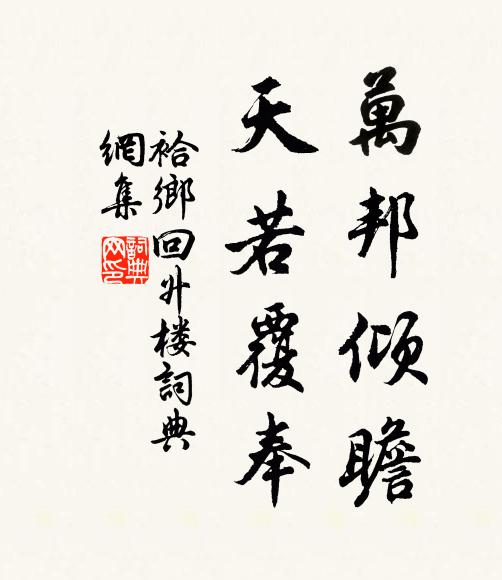 萬邦傾瞻
天若覆奉
袷鄉回舛楼詞典
網集
詞典
网印